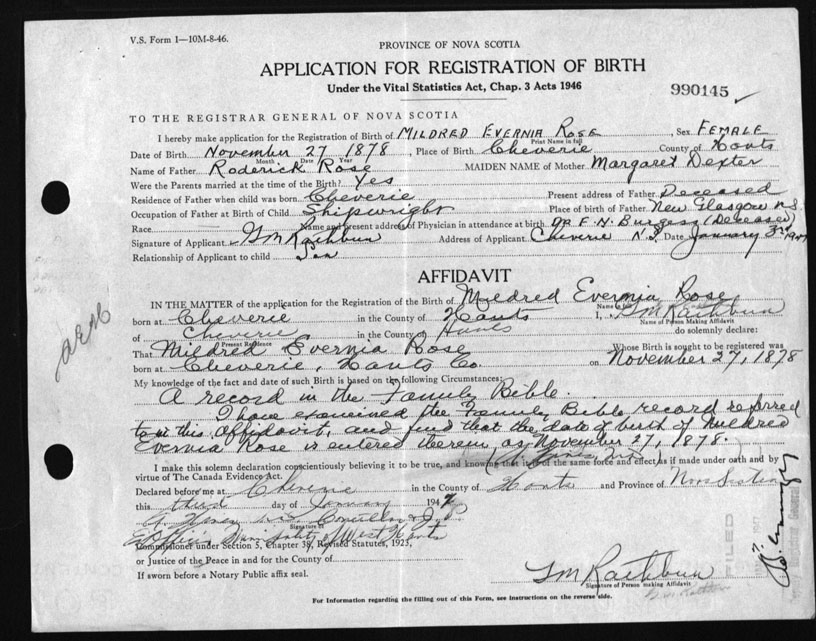 V.S. Form 1—10M-8-46.
PROVINCE OF NOVA SCOTIA
APPLICATION FOR REGISTRATION OF BIRTH
Under the Vital Statistics Act, Chap. 3 Acts 1946
990145
TO THE REGISTRAR GENERAL OF NOVA SCOTIA
I hereby make application for the Registration of Birth of MILDRED EVERNIA ROSE, Sex FEMALE
Print Name in full
Date of Birth November 27 1878, Place of Birth Cheverie County of Hants
Month Date Year
Name of Father Roderick Rose MAIDEN NAME of Mother Margaret Dexter
Were the Parents married at the time of Birth? Yes
Residence of Father when child was born Cheverie Present address of Father Deceased
Occupation of Father at Birth of Child Shipwright Place of birth of Father New Glasgow N.S.
Race Name and present address of Physician in attendance at birth Dr F. H. Burgess (Deceased)
Signature of Applicant Address of Applicant Cheverie N.S. Date January 3rd
Relationship of Applicant to child
AFFIDAVIT
IN THE MATTER of the application for the Registration of the Birth of Mildred Evernia Rose
Name in full
born at Cheverie in the County of Hants I, M Rathbun
Name of Person Making Affidavit
of Cheverie in the County of Hants do solemnly declare:
Present Residence
That Mildred Evernia Rose Whose Birth is sought to be registered was
born at Cheverie, Hants Co. on November 27, 1878
My knowledge of the fact and date of such Birth is based on the following Circumstances:
A record in the Family Bible.
I have examined the Family Bible record referred
to in this affidavit, and find that the date of birth of Mildred
Evernia Rose is entered therein as November 27, 1878.
I make this solemn declaration conscientiously believing it to be true, and knowing that it is of the same force and effect as if made under oath and by
virtue of The Canada Evidence Act.
Declared before me at Cheverie in the County of Hants and Province of Nova Scotia
this third day of January 1947
Signature of
Municipality of West Hants
Commissioner under Section 5, Chapter 38, Revised Statutes, 1923,
or Justice of the Peace in and for the County of
If sworn before a Notary Public affix seal.
M Rathbun
Signature of Person making Affidavit
For Information regarding the filling out of this Form, see instructions on the reverse side.
FILED